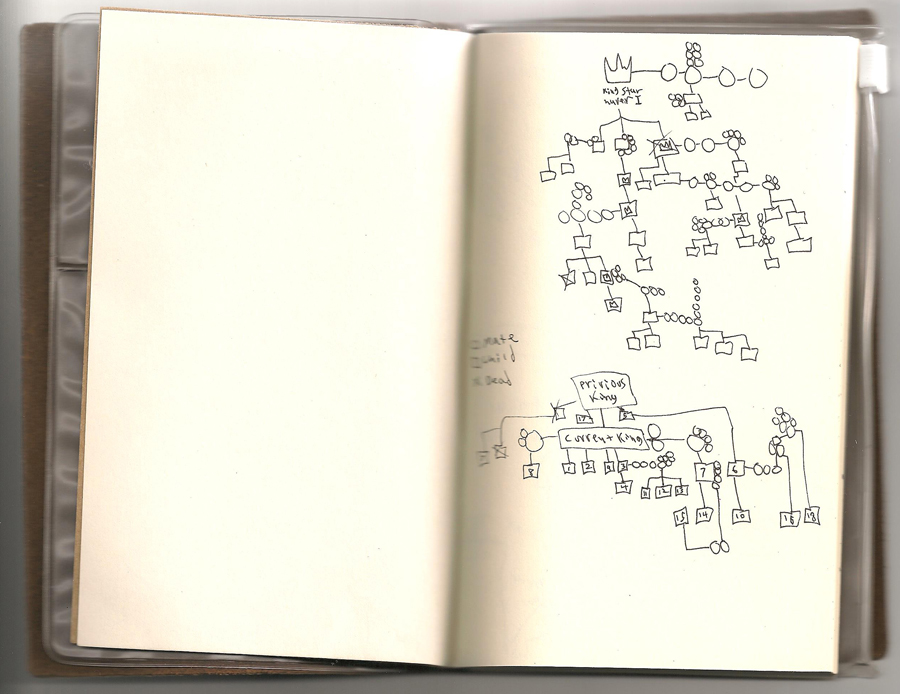 King Stur
Mate
Child
Dead
Privious
King
Current King
8 1 2 3 7 6
4 11 12 13
15 14 10 16 18